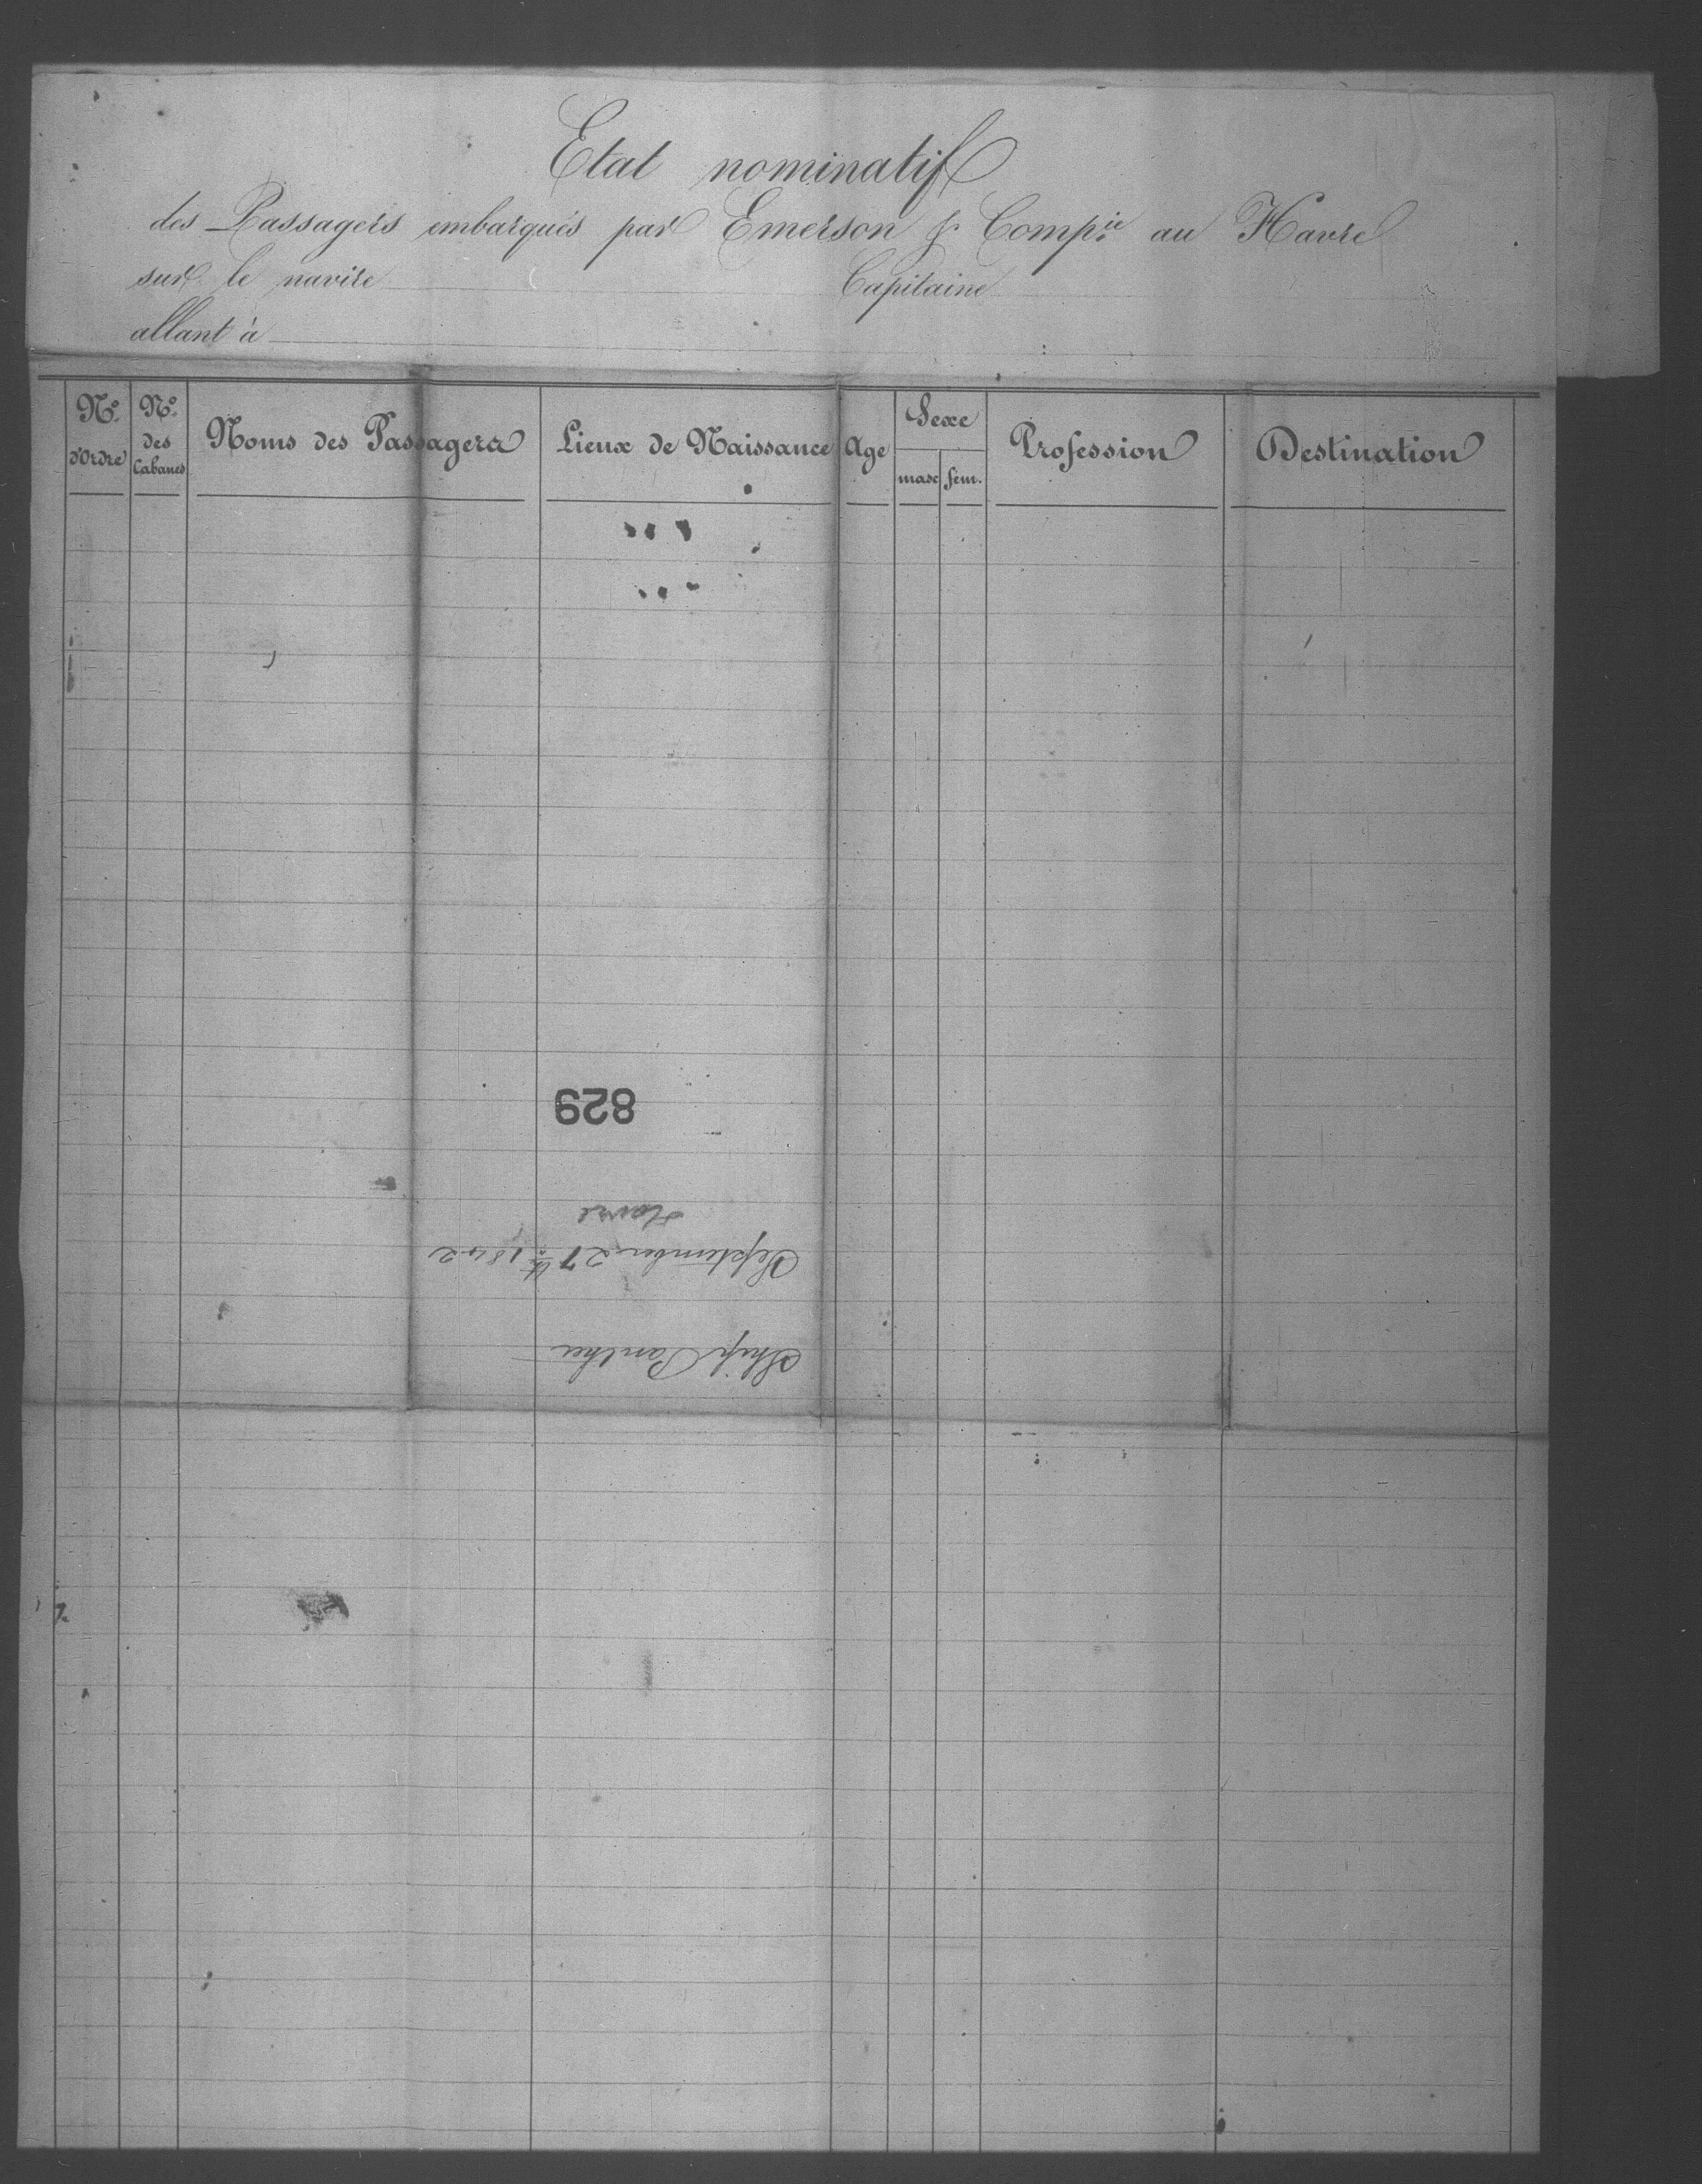 Etat nominatif
des Passagers embarqués par Emerson & Comp.ie au Havre
sur le navire Capitaine
allant à
No. d'Ordre
No. des Cabanes
Noms des Passagers
Lieux de Naissance
Age
Sexe
masc
fem.
Profession
Destination
Ship Panthea
September 27th 1842
Havre
829